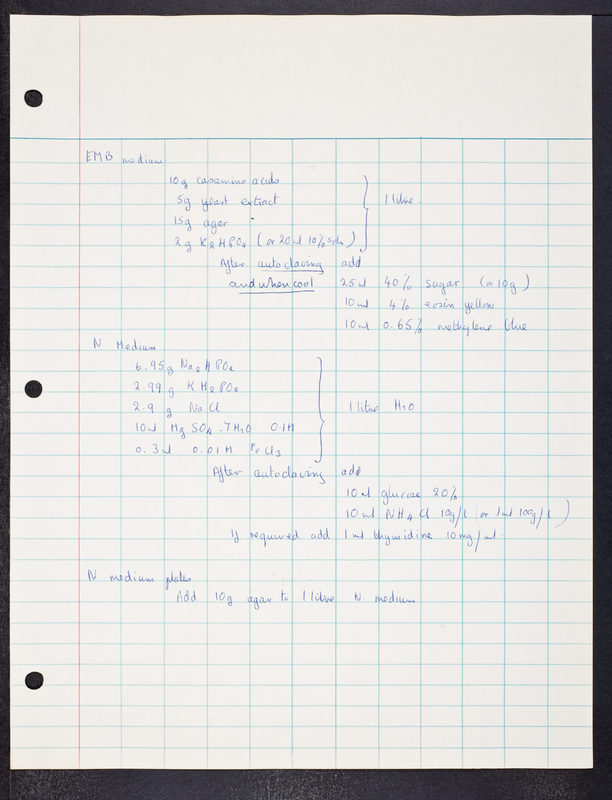 EMB medium
10g casamino acids
5g yeast extract
15g agar
2g K2HPO4 (or 20ml 10% soln)
1 litre.
After autoclaving add
and when cool 25ml 40% sugar (or 10g)
10ml 4% eosin yellow
10ml 0.65% methylene blue
N Medium
6.95g Na2HPO4
2.99g KH2PO4
2.9g NaCl
10ml MgSO4.7H2O 0.1M
0.3ml 0.01M FeCl3
1 litre H2O
After autoclaving add
10ml glucose 20%
10ml NH4Cl 10g/L (or 1ml 100g/L)
If required add 1ml thymidine 10mg/ml.
N medium plates
Add 10g agar to 1 litre N medium